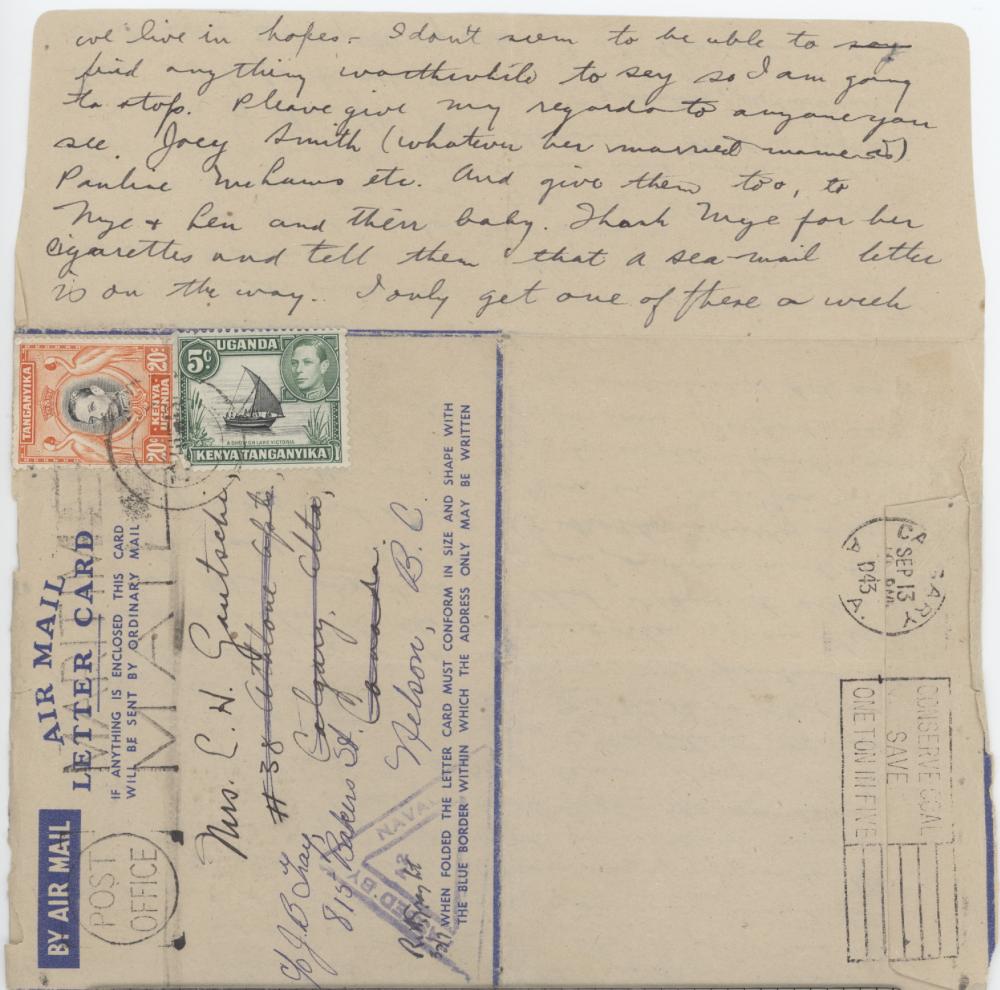 we live in hopes - I don't seem to be able to say
find anything worthwhile to say so I am going
to stop. Please give my regards to anyone you
see. Joey Smith (whatever her married name is)
Pauline etc. And give them too, to
Mye + Len and their baby. Thank Mye for her
cigarettes and tell them that a sea-mail letter
is on the way.. I only get one of these a week
TANGANYIKA
20c
KENYA
UGANDA
20c
UGANDA
5c
A DHOW ON LAKE VICTORIA
KENYA TANGANYIKA
AIR MAIL
LETTER CARD
IF ANYTHING IS ENCLOSED THIS CARD
WILL BE SENT BY ORDINARY MAIL
BY AIR MAIL
MARITIME
MAIL
POST
OFFICE
Mrs. C. W. Gautschi,
# 38 Athlone Apts,
Calgary, Alta,
Canada.
c/o J. B. Gray
815 Bakers St.
Nelson, B.C.
NAVAL
ED BY
WHEN FOLDED THE LETTER CARD MUST CONFORM IN SIZE AND SHAPE WITH
THE BLUE BORDER WITHIN WHICH THE ADDRESS ONLY MAY BE WRITTEN
CALGARY
SEP 13
1943
CONSERVE COAL
SAVE
ONE TON IN FIVE